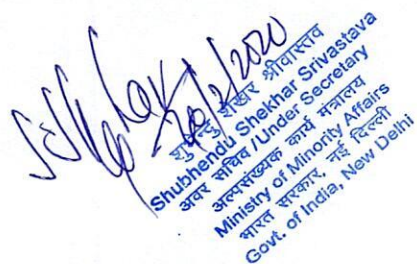 20/2/2020
शुभेन्दु शेखर श्रीवास्तव
Shubhendu Shekhar Srivastava
अवर सचिव /Under Secretary
अल्पसंख्यक कार्य मंत्रालय
Ministry of Minority Affairs
भारत सरकार, नई दिल्ली
Govt. of India, New Delhi